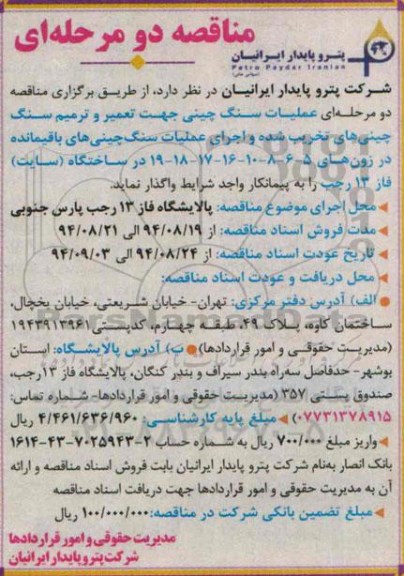 مناقصه دو مرحله‌ای
پترو پایدار ایرانیان
Petro Paydar Iranian
(سهامی خاص)
شرکت پترو پایدار ایرانیان در نظر دارد، از طریق برگزاری مناقصه
دو مرحله‌ای عملیات سنگ چینی جهت تعمیر و ترمیم سنگ
چینی‌های تخریب شده و اجرای عملیات سنگ‌چینی‌های باقیمانده
در زون‌های ۵-۶-۸-۱۰-۱۶-۱۷-۱۸-۱۹ در ساختگاه (سایت)
فاز ۱۳ رجب را به پیمانکار واجد شرایط واگذار نماید.
محل اجرای موضوع مناقصه: پالایشگاه فاز ۱۳ رجب پارس جنوبی
مدت فروش اسناد مناقصه: از ۹۴/۰۸/۱۹ الی ۹۴/۰۸/۲۱
تاریخ عودت اسناد مناقصه: از ۹۴/۰۸/۲۴ الی ۹۴/۰۹/۰۳
محل دریافت و عودت اسناد مناقصه:
الف) آدرس دفتر مرکزی: تهران- خیابان شریعتی، خیابان یخچال،
ساختمان کاوه، پلاک ۴۹، طبقه چهارم، کدپستی ۱۹۴۳۹۱۳۹۶۱
(مدیریت حقوقی و امور قراردادها) ب) آدرس پالایشگاه: استان
بوشهر- حدفاصل سه‌راه بندر سیراف و بندر کنگان، پالایشگاه فاز ۱۳رجب،
صندوق پستی ۳۵۷ (مدیریت حقوقی و امور قراردادها- شماره تماس:
۰۷۷۳۱۳۷۸۹۱۵) مبلغ پایه کارشناسی: ۴/۴۶۱/۶۳۶/۹۶۰ ریال
واریز مبلغ ۷۰۰/۰۰۰ ریال به شماره حساب ۲-۷۰۲۵۹۴۳-۴۳-۱۶۱۴
بانک انصار به‌نام شرکت پترو پایدار ایرانیان بابت فروش اسناد مناقصه و ارائه
آن به مدیریت حقوقی و امور قراردادها جهت دریافت اسناد مناقصه
مبلغ تضمین بانکی شرکت در مناقصه: ۱۰۰/۰۰۰/۰۰۰ ریال
مدیریت حقوقی و امور قراردادها
شرکت پترو پایدار ایرانیان
ParsNamadData